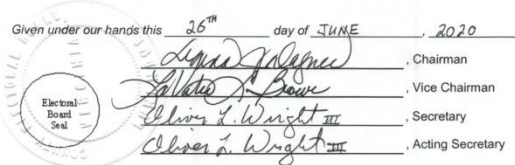 Given under our hands this 26TH day of JUNE, 2020
, Chairman
, Vice Chairman
Oliver L. Wright III, Secretary
Oliver L. Wright III, Acting Secretary
Electoral
Board
Seal